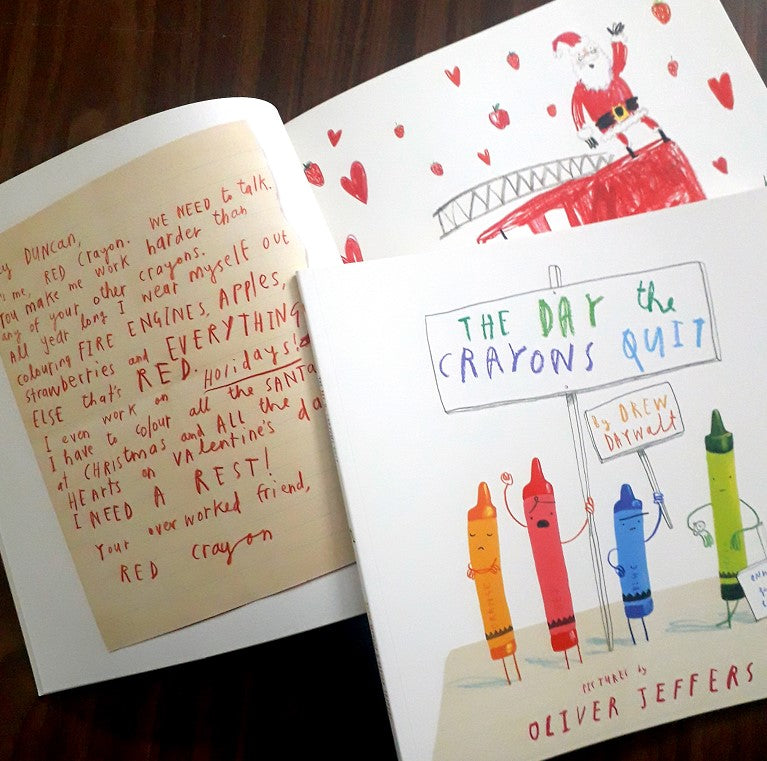 DUNCAN,
me, RED Crayon. WE NEED to talk.
You make me work harder than
any of your other crayons.
All year long I wear myself out
colouring FIRE ENGINES, APPles,
strawberries and EVERYTHING
ELSE that's RED.
I even work on Holidays!
I have to colour all the SANTA
at CHRistmas and ALL the
HEARTS on VAlentine's da
I NEED A REST!
Your overworked friend,
RED Crayon
THE DAY the
CRAYONS QUIT
by DREW
DAYWAlt
BLUE
PICTURES by
OLIVER JEFFERS